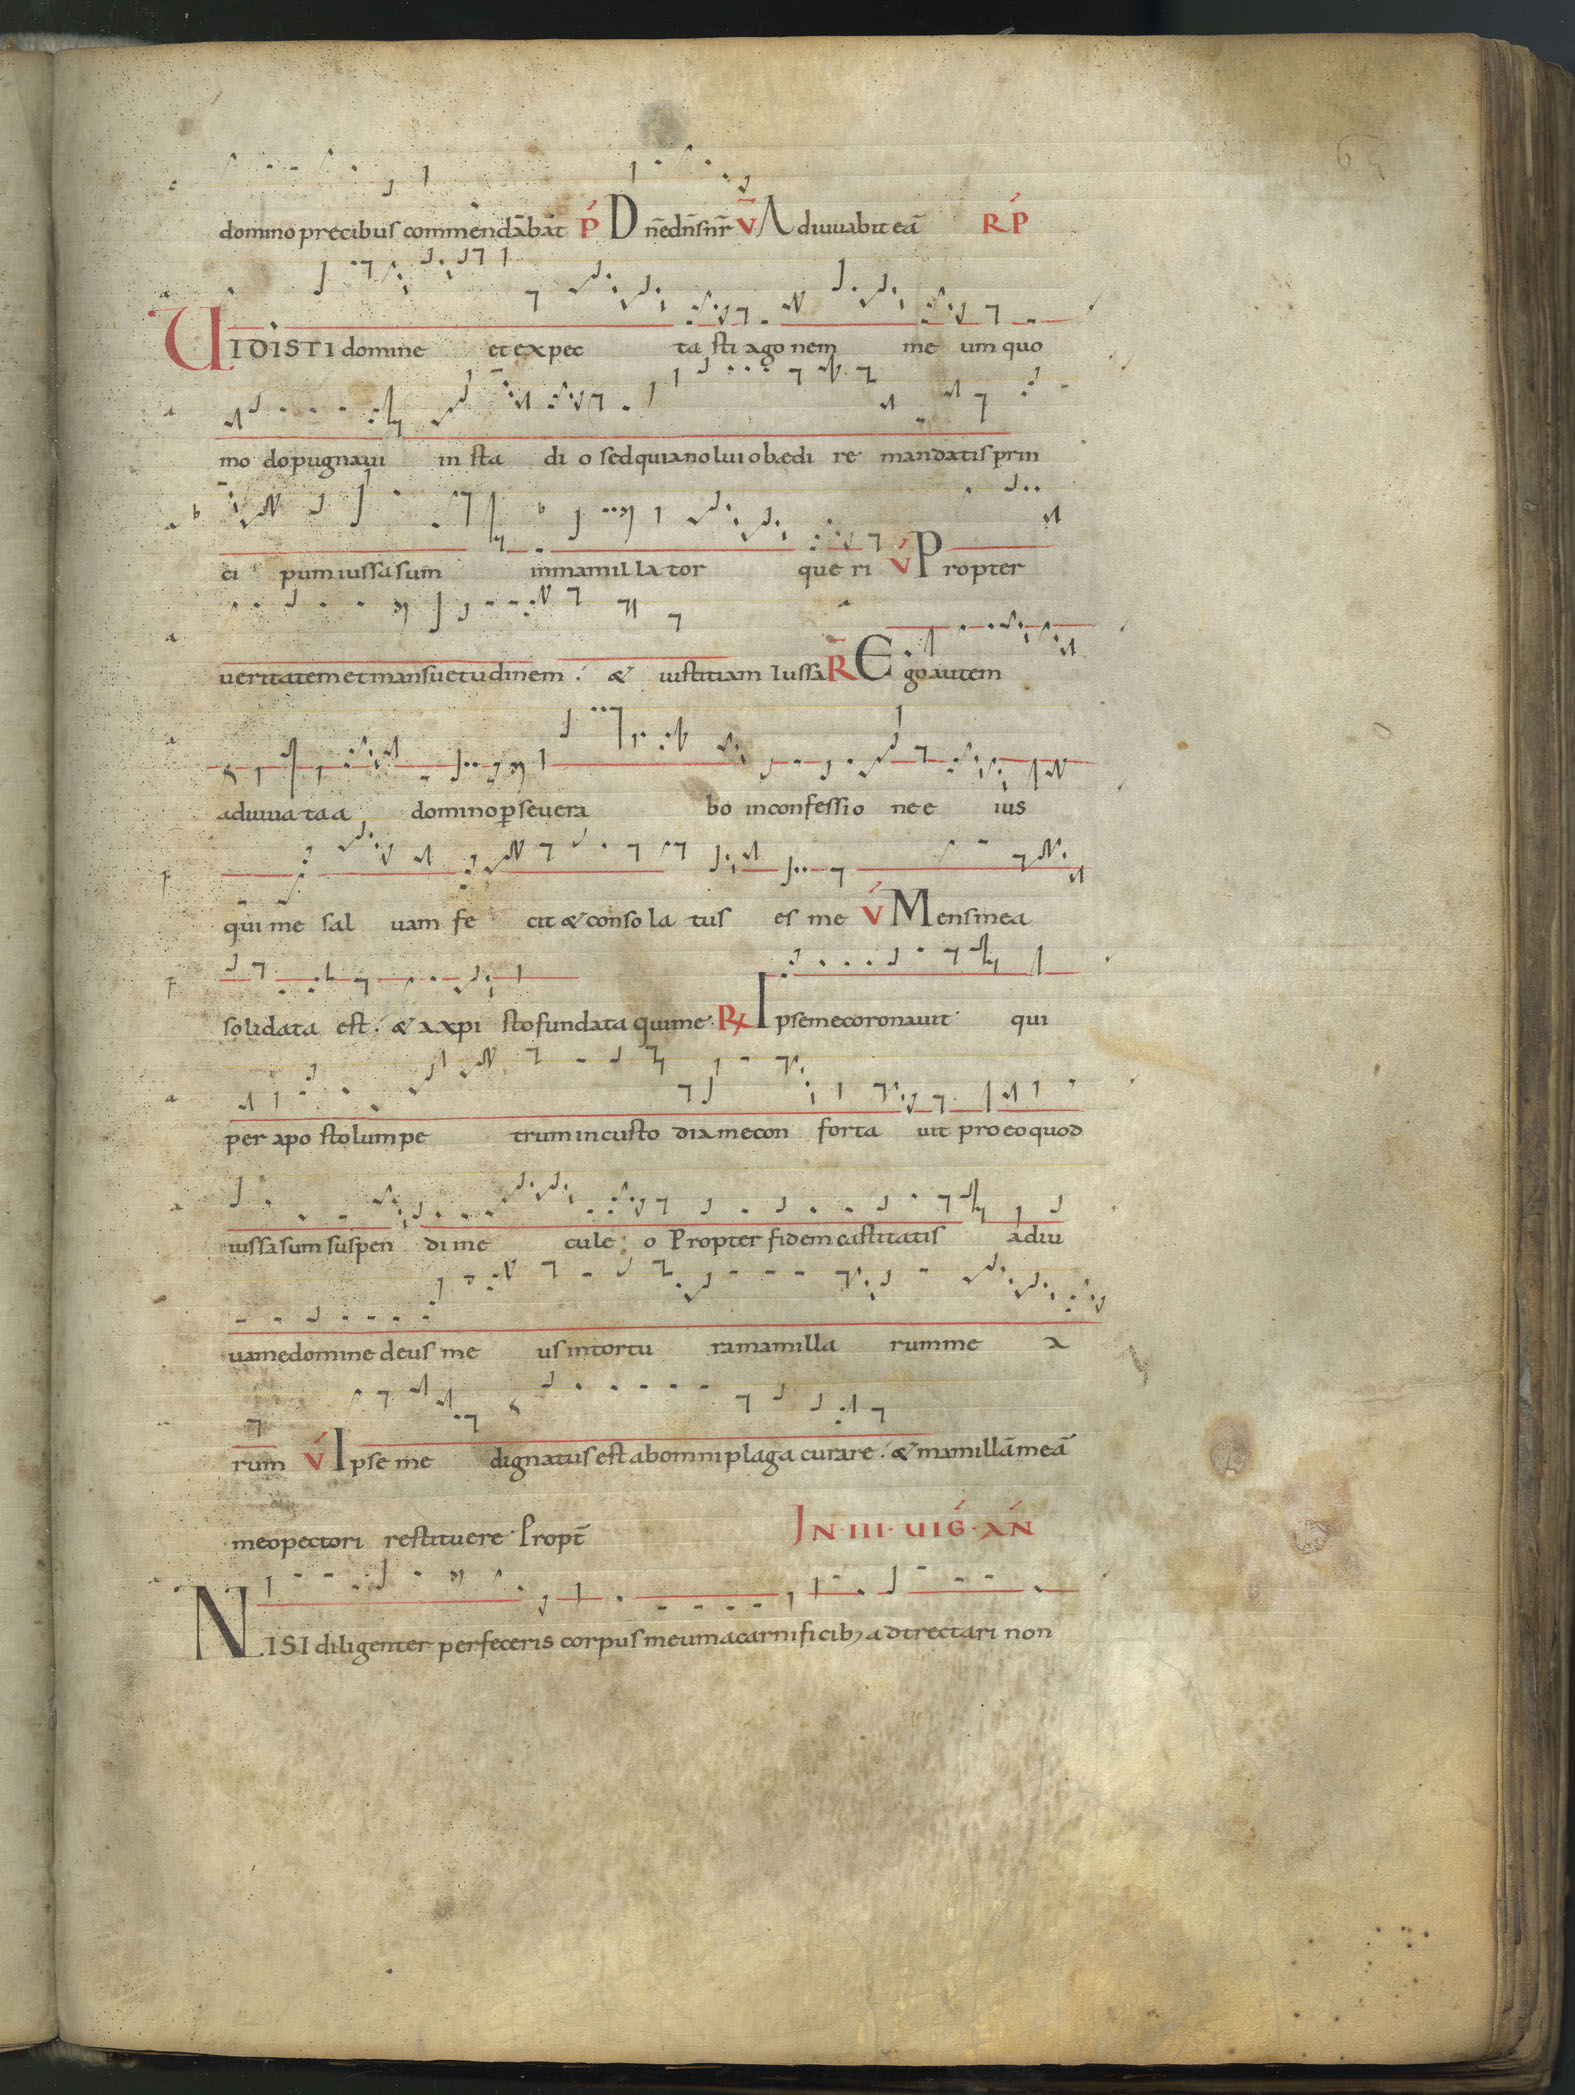 domino precibus commendāb̄at P̄ D n̄e dn̄s nr̄ V̄ Adiuuabit eā RP
UIDISTI domine et expec ta sti ago nem me um quo
mo do pugnaui in sta di o sed quia nolui obædi re mandatis prin
ci pum iussa sum in mamil la tor que ri V́ Propter
ueritatem et mansuetudinem . & iustitiam Iussa R̄ Ego autem
adiuua ta a domino pseuera bo in confessio ne e ius
qui me sal uam fe cit & conso la tus es me V́ Mens mea
solidata est . & a xpi sto fundata qui me . R Ipse me coronauit qui
per apo stolum pe trum in custo dia me con forta uit pro eo quod
iussa sum suspen di in e cule o Propter fidem castitatis adiu
ua me domine deus me us in tortu ra mamilla rum me a
rum V́ Ipse me dignatus est ab omni plaga curare . & mamillā meā
meo pectori restituere . Propt̄
IN · III · UIG · AN̄
NISI diligenter perfeceris corpus meum a carnificib; adtrectari non